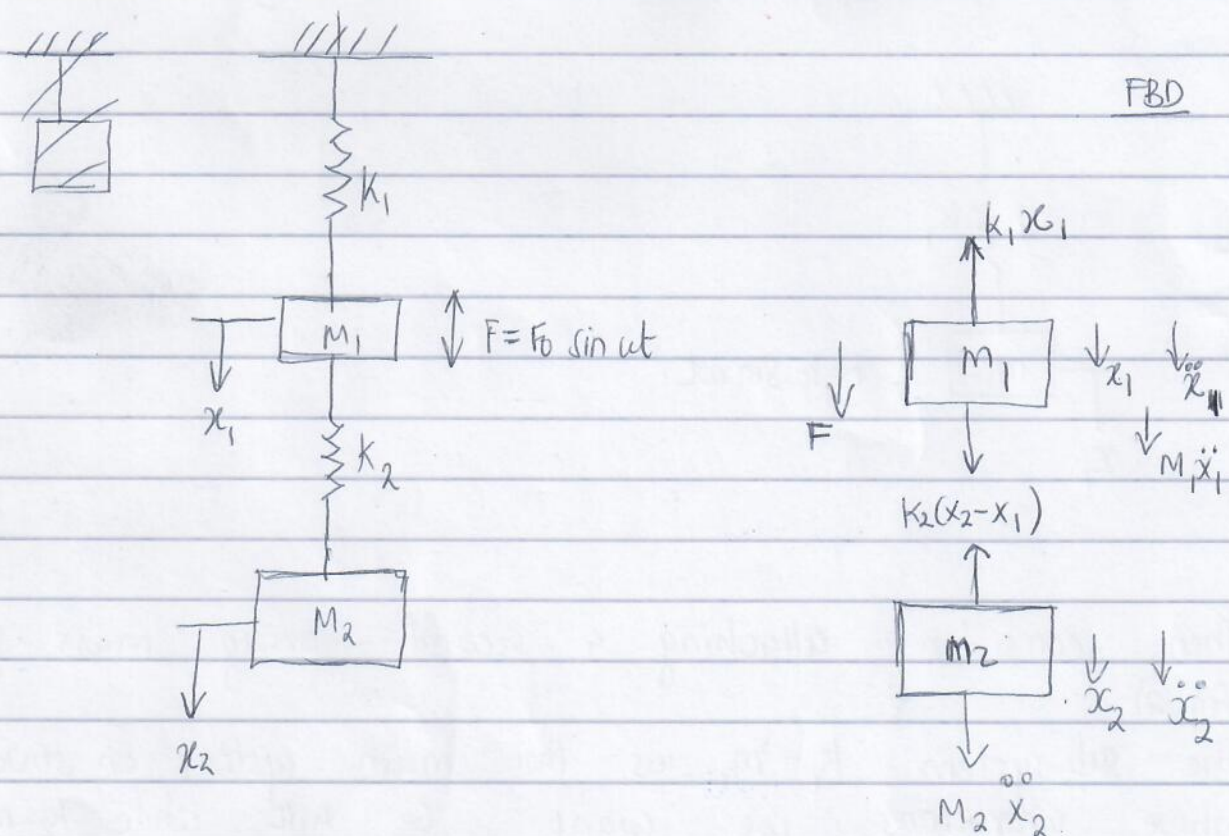 FBD
K₁
M₁
F = F₀ sin ωt
x₁
K₂
M₂
x₂
k₁x₁
M₁
F
x₁
ẍ₁
M₁ẍ₁
K₂(x₂-x₁)
m₂
x₂
ẍ₂
M₂ẍ₂